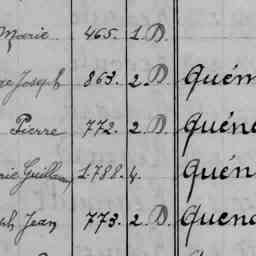 Marie 465. 1. D.
Joseph 863. 2. D. Quém
Pierre 772. 2. D. Quén
Guillaum 1.788. 4. Quén
Jean 773. 2. D. Quen